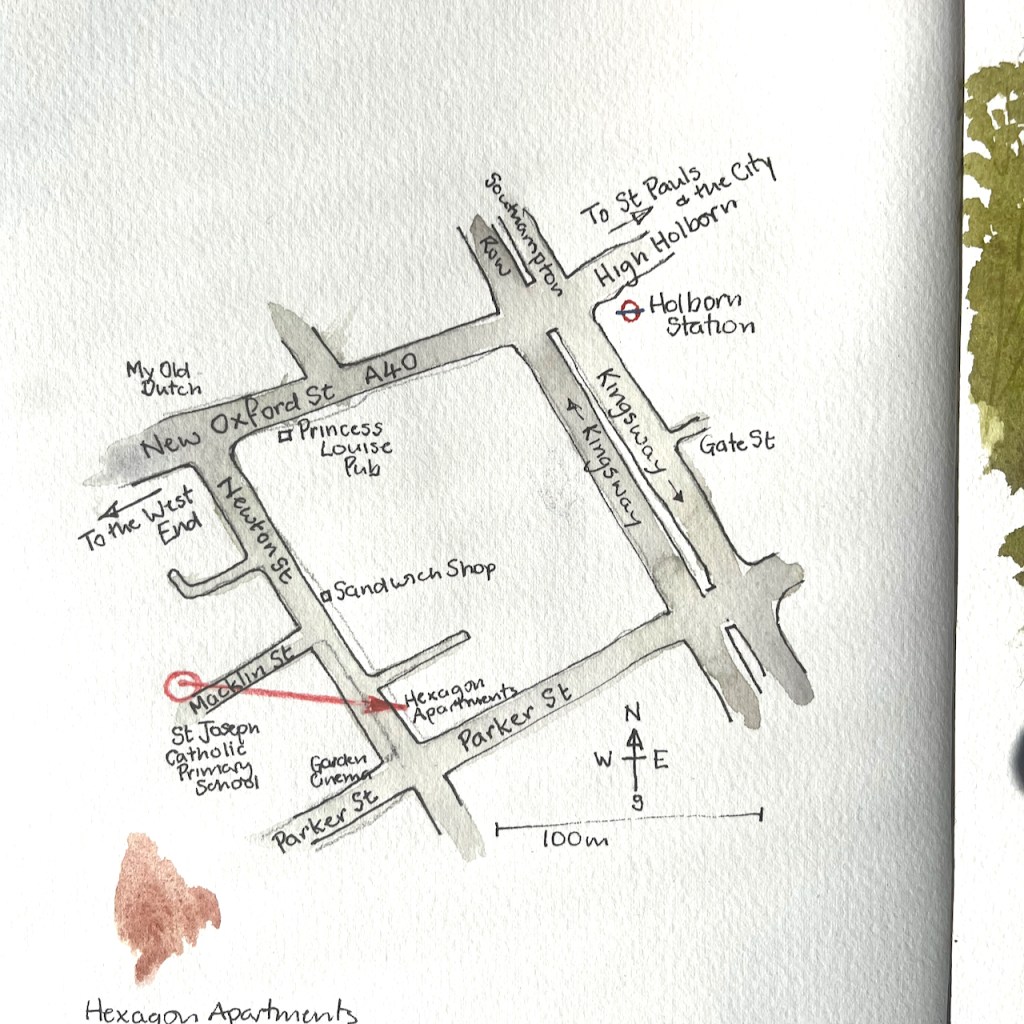 Southampton
Row
To St Pauls
& the City
High Holborn
Holborn
Station
My Old
Dutch
New Oxford St A40
Princess
Louise
Pub
Kingsway
Kingsway
Gate St
To the West
End
Newton St
Sandwich Shop
Macklin St
Hexagon
Apartments
St Joseph
Catholic
Primary
School
Garden
Cinema
Parker St
Parker St
N
W E
S
100m
Hexagon Apartments